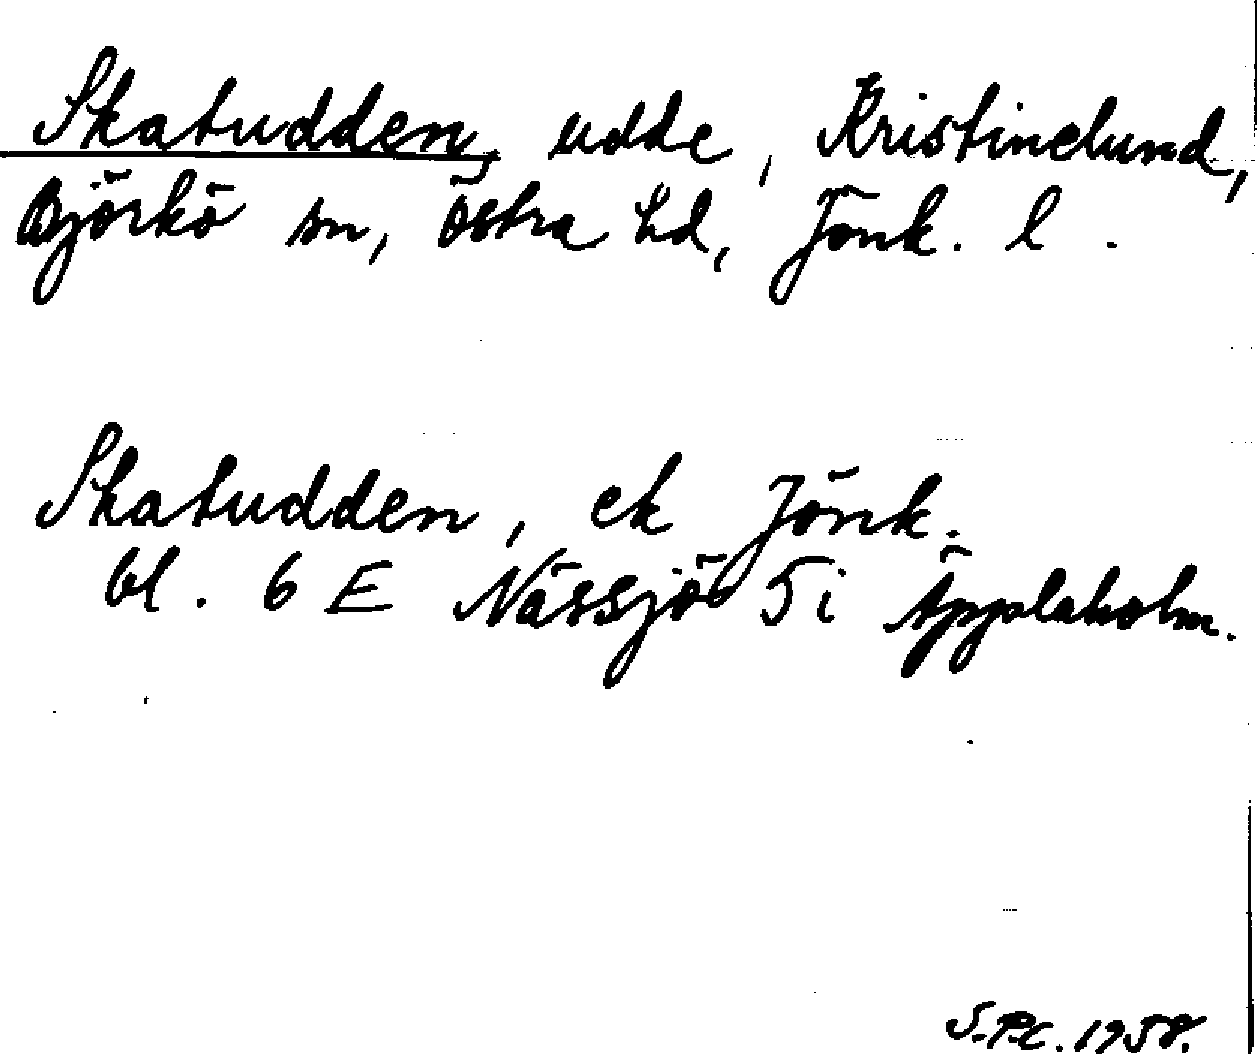 Skatudden, udde, Kristinelund,
Björkö sn, Östra hd, Jönk. l.
Skatudden, ek Jönk.
bl. 6 E Nässjö 5i Äpplaholm.
S.P.C. 1958.